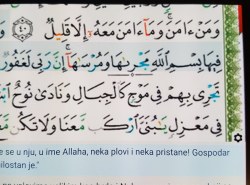 وَمَنْ ءَامَنَ ۚ وَمَآ ءَامَنَ مَعَهُۥٓ إِلَّا قَلِيلٌ ٤٠
فِيهَا بِسْمِ ٱللَّهِ مَجْر۪ىٰهَا وَمُرْسَىٰهَآ ۚ إِنَّ رَبِّى لَغَفُورٌ
تَجْرِى بِهِمْ فِى مَوْجٍ كَٱلْجِبَالِ وَنَادَىٰ نُوحٌ
فِى مَعْزِلٍ يَـٰبُنَىَّ ٱرْكَب مَّعَنَا وَلَا تَكُن
e se u nju, u ime Allaha, neka plovi i neka pristane! Gospodar
ilostan je."